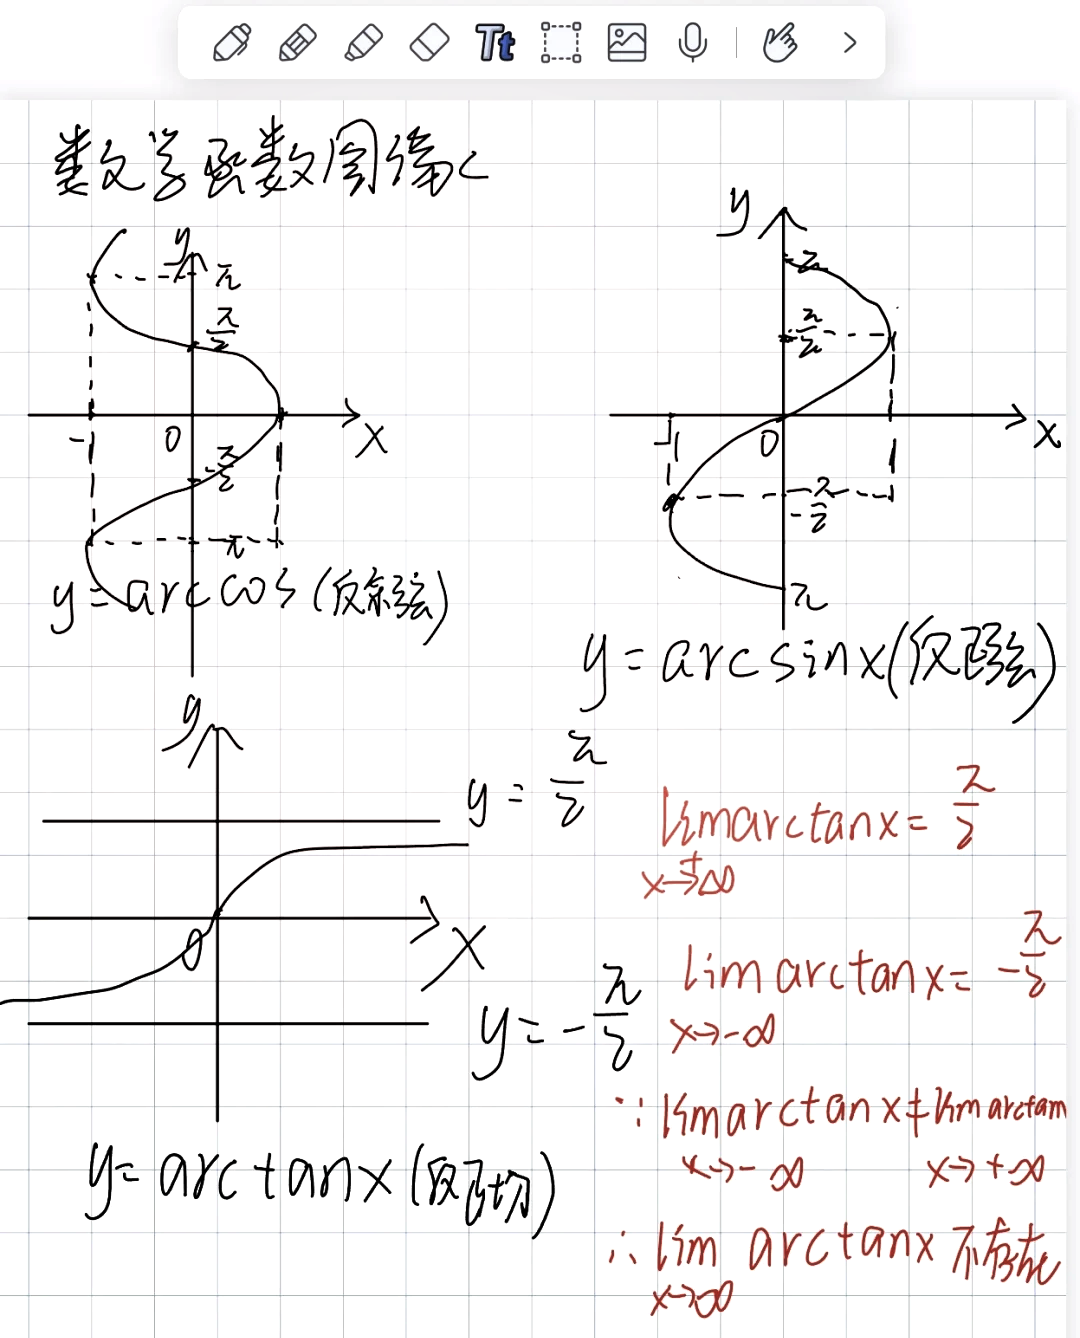 Tt
数学函数图像
y
π
π/2
-1
0
x
-π/2
-π
y=arccos(反余弦)
y
π
π/2
-1
0
x
-π/2
π
y=arcsinx(反正弦)
y
y=π/2
0
x
y=-π/2
y=arctanx(反正切)
lim arctanx=π/2
x→+∞
lim arctanx=-π/2
x→-∞
∵lim arctanx≠lim arctan
x→-∞ x→+∞
∴lim arctanx不存在
x→∞